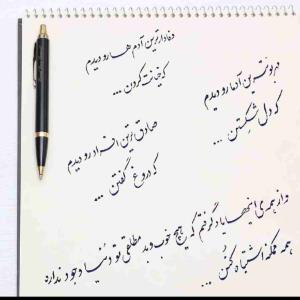 وفادارترین آدم ها رو دیدم
که خیانت کردن ...
مهربونترین آدما رو دیدم
که دل شکستن ...
صادق ترین افراد رو دیدم
که دروغ گفتن ...
و از همه ی اینها یاد گرفتم که هیچ خوب و بد مطلقی تو دنیا وجود نداره
همه ممکنه اشتباه کنن ...